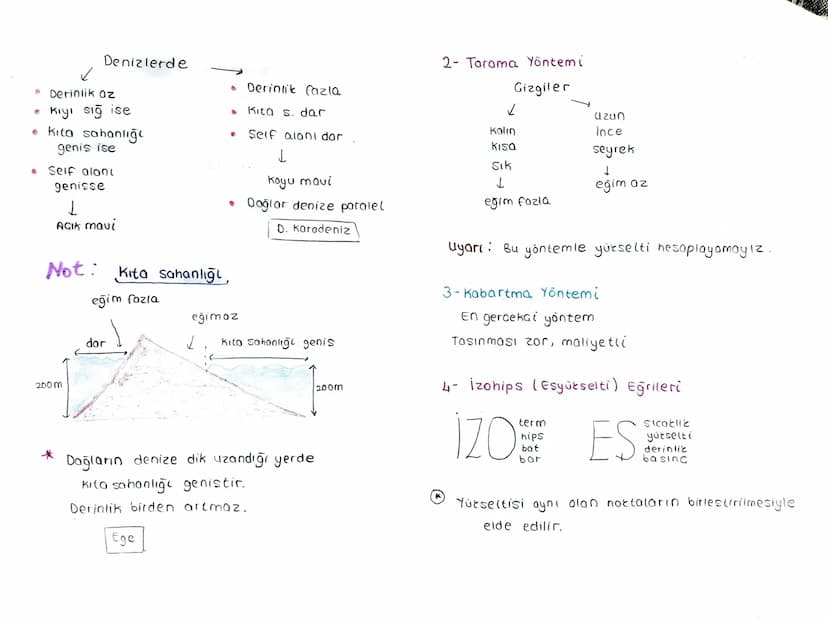 Denizlerde
Derinlik az
Kıyı sığ ise
Kıta sahanlığı
geniş ise
Self alanı
genişse
Açık mavi
Derinlik fazla
Kıta s. dar
Self alanı dar
Koyu mavi
Dağlar denize paralel
D. Karadeniz
Not: Kıta sahanlığı
eğim fazla
eğimaz
dar
Kıta sahanlığı geniş
200m
200m
* Dağların denize dik uzandığı yerde
kıta sahanlığı geniştir.
Derinlik birden artmaz.
Ege
2- Tarama Yöntemi
Çizgiler
Kalın
Kısa
Sık
eğim fazla
uzun
ince
seyrek
eğim az
Uyarı: Bu yöntemle yükselti hesaplayamayız.
3- Kabartma Yöntemi
En gerçekçi yöntem
Taşınması zor, maliyetli
4- İzohips (Eşyükselti) Eğrileri
İZO
term
hips
bat
bar
EŞ
sıcaklık
yükselti
derinlik
basınç
* Yükseltisi aynı olan noktaların birleştirilmesiyle
elde edilir.